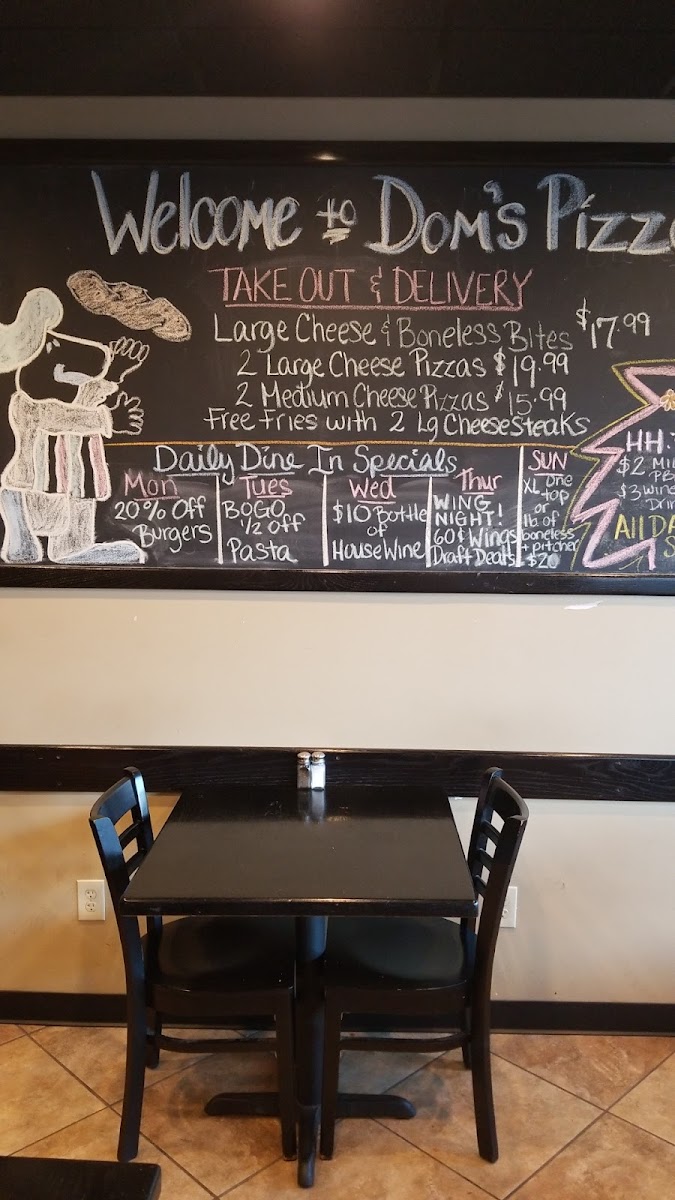 Welcome to Dom's Pizza
TAKE OUT & DELIVERY
Large Cheese & Boneless Bites $17.99
2 Large Cheese Pizzas $19.99
2 Medium Cheese Pizzas $15.99
Free Fries with 2 Lg Cheesesteaks
Daily Dine In Specials
Mon
20% Off
Burgers
Tues
BOGO
1/2 Off
Pasta
Wed
$10 Bottle
of
House Wine
Thur
WING
NIGHT!
60¢ Wings
Draft Deals
SUN
XL one
top
or
lb. of
boneless
+ pitcher
$20
HH
$2 MIL
PB
$3 Wine
Drin
All DA
S